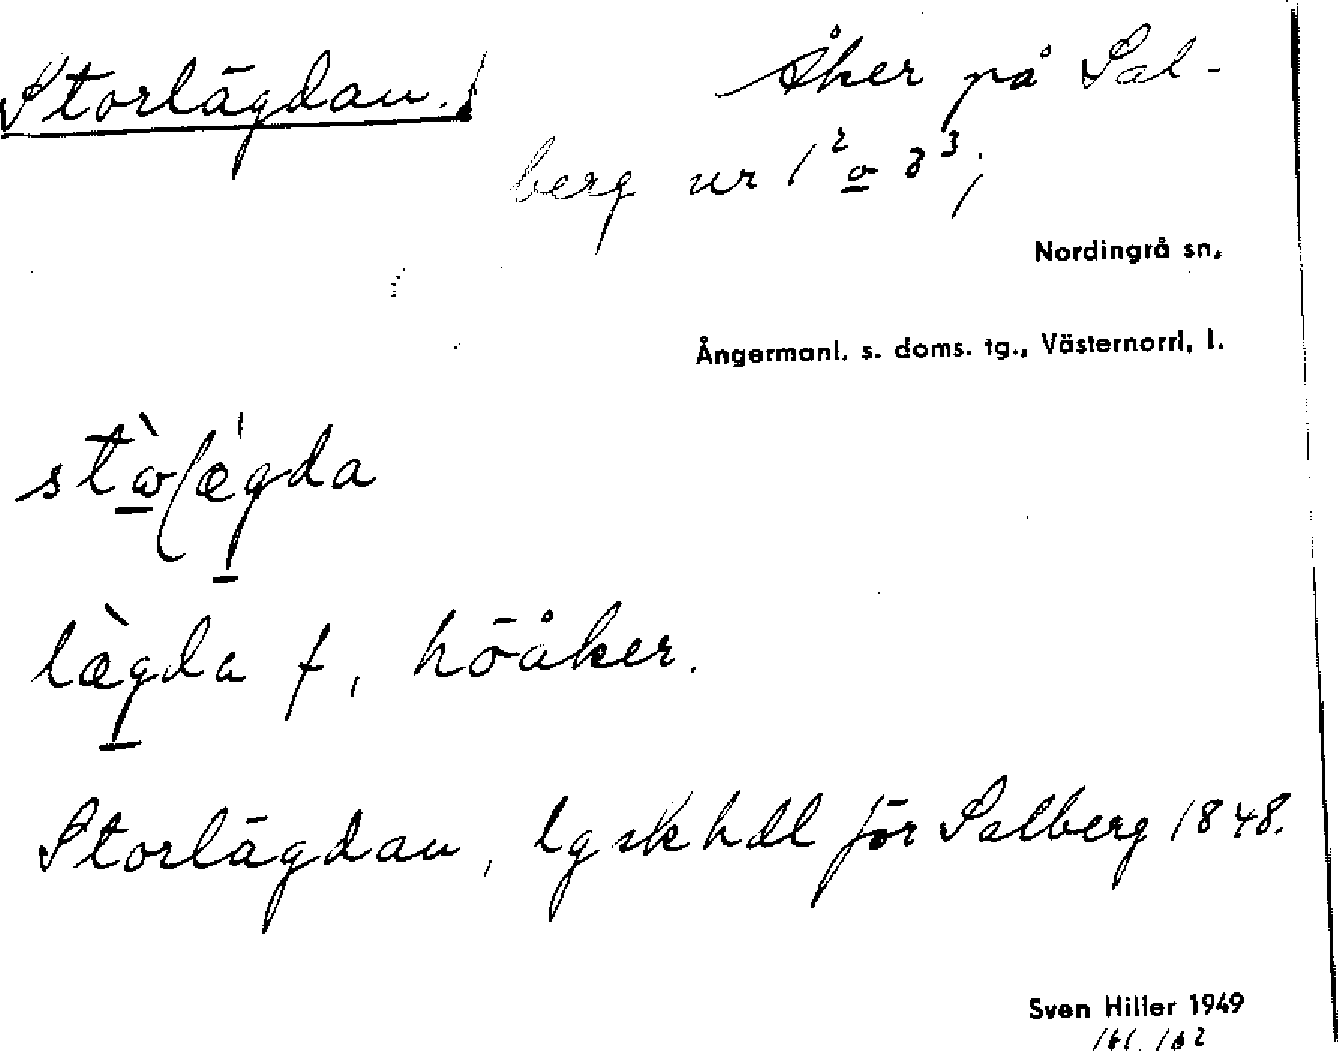 Storlägdan.
Åker på Sal-
berg nr 1² o 3³;
Nordingrå sn,
Ångermanl. s. doms. tg., Västernorrl, l.
lægda f, höåker.
Storlägdan, lgskhdl för Salberg 1848.
Sven Hiller 1949